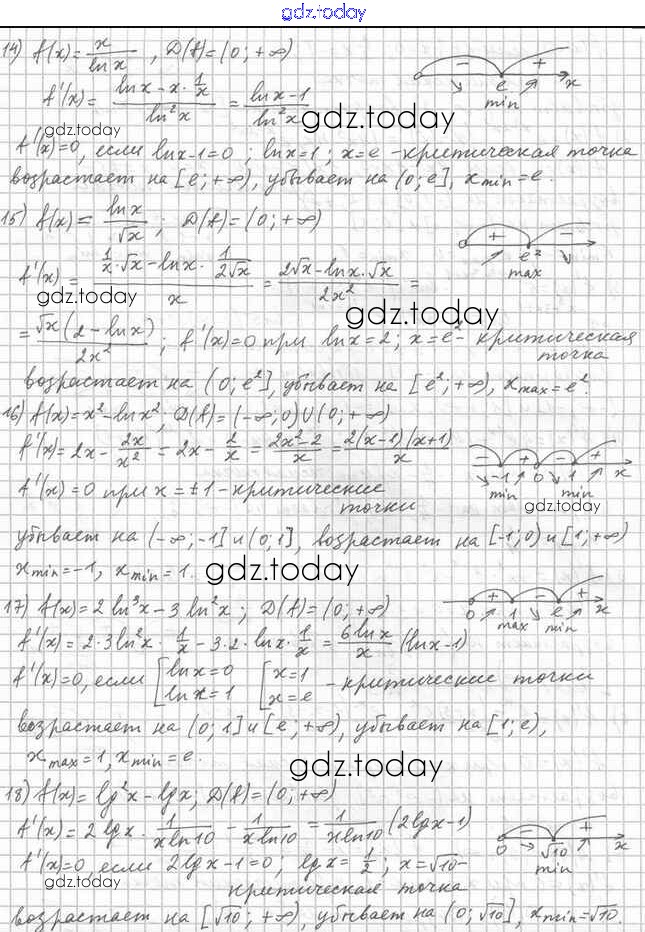 gdz.today
14) f(x) = x/ln x , D(f) = (0; +∞)
− + e min x
f'(x) = (ln x − x · 1/x)/ln²x = (ln x − 1)/ln²x
gdz.today
gdz.today
f'(x)=0, если ln x−1=0 ; ln x=1 ; x=e −критическая точка
возрастает на [e; +∞), убывает на (0; e], x min = e.
15) f(x) = ln x/√x ; D(f) = (0; +∞)
+ − e² max
f'(x) = (1/x · √x − ln x · 1/(2√x))/x = (2√x − ln x · √x)/2x² =
gdz.today
gdz.today
= √x(2 − ln x)/2x² ; f'(x)=0 при ln x = 2 ; x = e² − критическая
точка
возрастает на (0; e²], убывает на [e²; +∞), x max = e².
16) f(x) = x² − ln x² ; D(f) = (−∞; 0) ∪ (0; +∞)
f'(x) = 2x − 2x/x² = 2x − 2/x = (2x² − 2)/x = 2(x−1)(x+1)/x
− + − + −1 0 1 x
min min
f'(x) = 0 при x = ±1 − критические
точки
gdz.today
убывает на (−∞; −1] и (0; 1], возрастает на [−1; 0) и [1; +∞)
x min = −1, x min = 1.
gdz.today
17) f(x) = 2 ln³x − 3 ln²x ; D(f) = (0; +∞)
+ − + 0 1 e x
max min
f'(x) = 2·3 ln²x · 1/x − 3·2·ln x · 1/x = 6 ln x/x (ln x − 1)
f'(x)=0, если [ln x = 0 [x = 1 − критические точки
ln x = 1 x = e
возрастает на (0; 1] и [e; +∞), убывает на [1; e),
x max = 1, x min = e.
gdz.today
18) f(x) = lg²x − lg x ; D(f) = (0; +∞)
f'(x) = 2 lg x · 1/(x ln 10) − 1/(x ln 10) = 1/(x ln 10) (2 lg x − 1)
− + 0 √10 x
min
f'(x)=0, если 2 lg x − 1 = 0 ; lg x = 1/2 ; x = √10 −
gdz.today
критическая точка
возрастает на [√10; +∞), убывает на (0; √10], x min = √10.